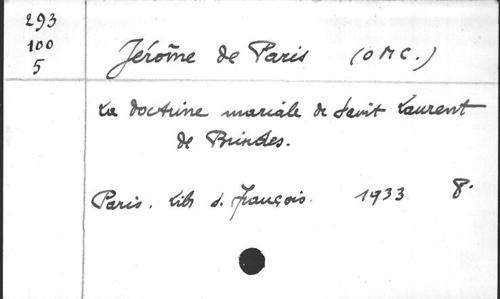 293
100
5
Jérôme de Paris (O M C.)
La doctrine mariale de Saint Laurent
de Brindes.
Paris. Lib. S. François. 1933 8°.